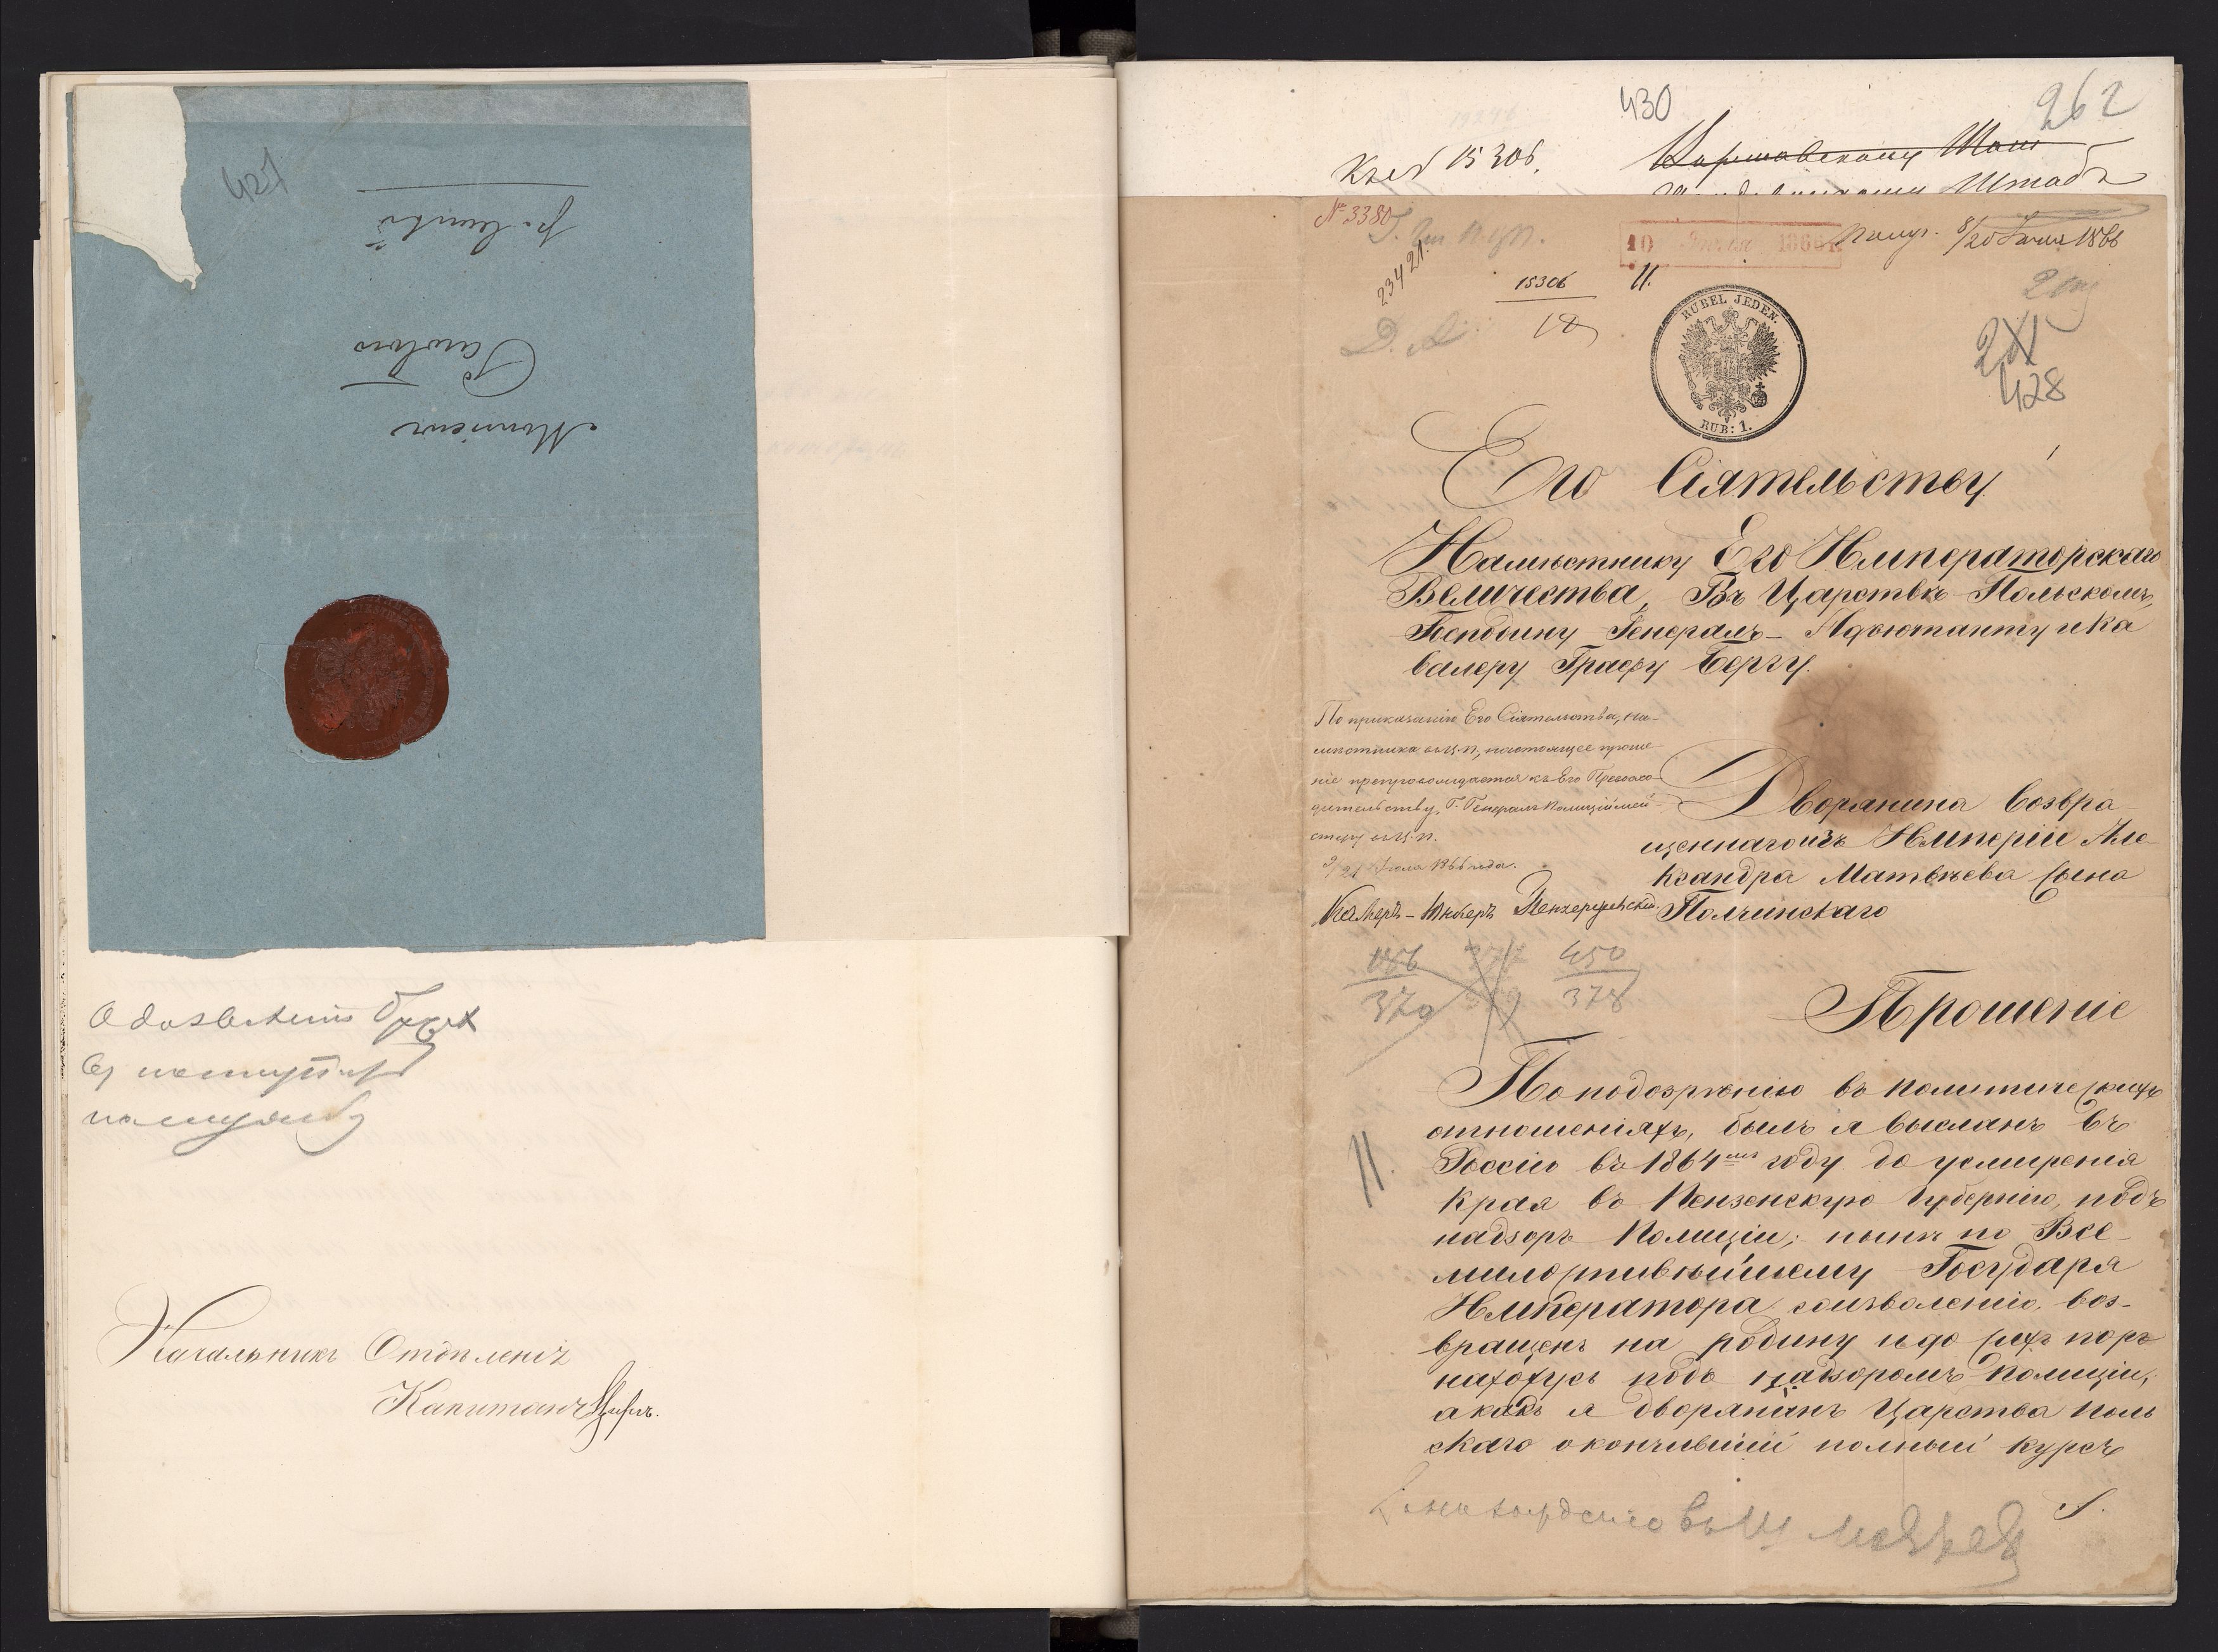 427
Monsieur
Pawłow
Начальникъ Отдѣленія
Капитанъ
430
262
Къ № 15306.
Варшавскому
Штабъ
№ 3380
23421.
10 Іюля 1866
Получ. 8/20 Іюля 1866
15306
18
RUBEL JEDEN.
RUB: 1.
428
Его Сіятельству
Намѣстнику Его Императорскаго
Величества, Въ Царствѣ Польскомъ,
Господину Генералъ-Адъютанту и Ка
валеру Графу Бергу.
По приказанію Его Сіятельства, На-
мѣстника въ Ц. П., настоящее проше-
ніе препровождается къ Его Превосхо-
дительству, Г. Генералъ Полиціймей-
стеру въ Ц. П.
9/21 Іюля 1866 года.
Камеръ-Юнкеръ
Дворянина Возвра-
щеннаго изъ Имперіи Але-
ксандра Матвѣева Сына
Полчинскаго
186
370
450
378
Прошеніе
По подозрѣнію въ политическихъ
отношеніяхъ, былъ я высланъ въ
Россію въ 1864мъ году до усмиренія
Края въ Пензенскую Губернію, подъ
надзоръ Полиціи; нынѣ по Все-
милостивѣйшему Государя
Императора соизволенію, воз-
вращенъ на родину и до сихъ поръ
нахожусь подъ надзоромъ Полиціи,
а какъ я дворянинъ Царства Поль
скаго окончившій полный курсъ